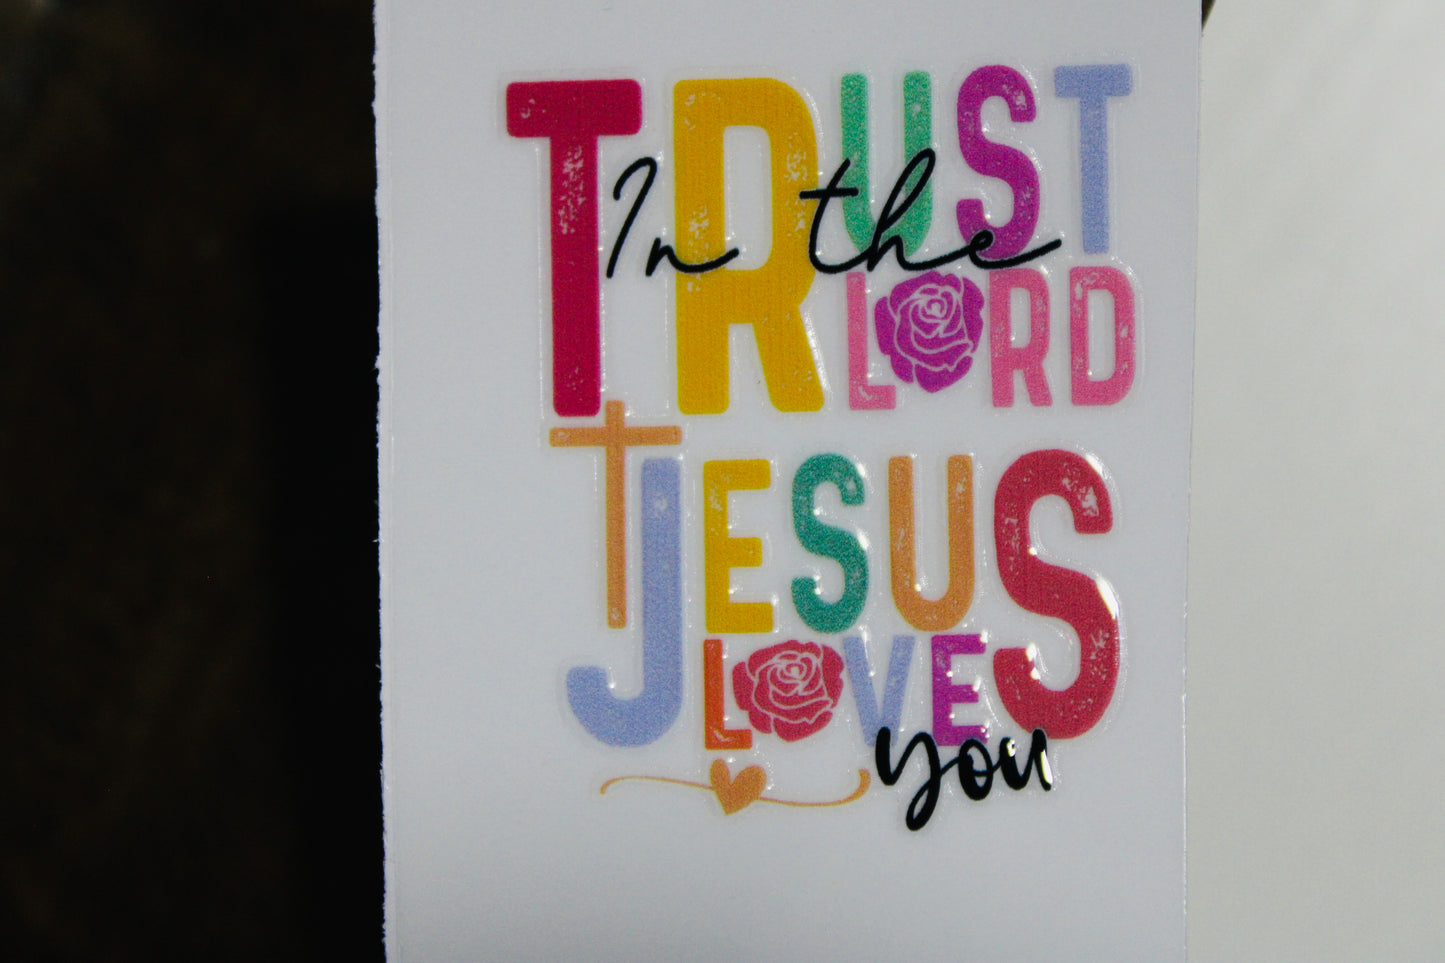 TRUST
In the
LORD
JESUS
LOVES
you